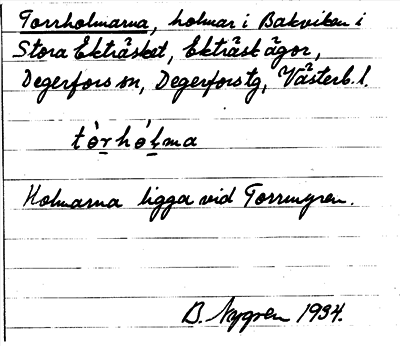 Torrholmarna, holmar i Bakviken i
Stora Ekträsket, Ekträsk ägor,
Degerfors sn, Degerfors tg, Västerb. l.
tò̠rhó̠l̠ma
Holmarna ligga vid Torrmyren.
B. Nygren 1934.